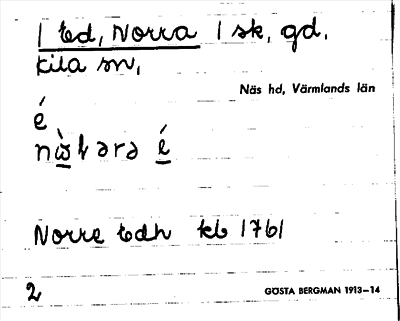 1 Ed, Norra 1 sk, gd,
Kila sn,
Näs hd, Värmlands län
é
Norre Edh kb 1761
2
GÖSTA BERGMAN 1913–14